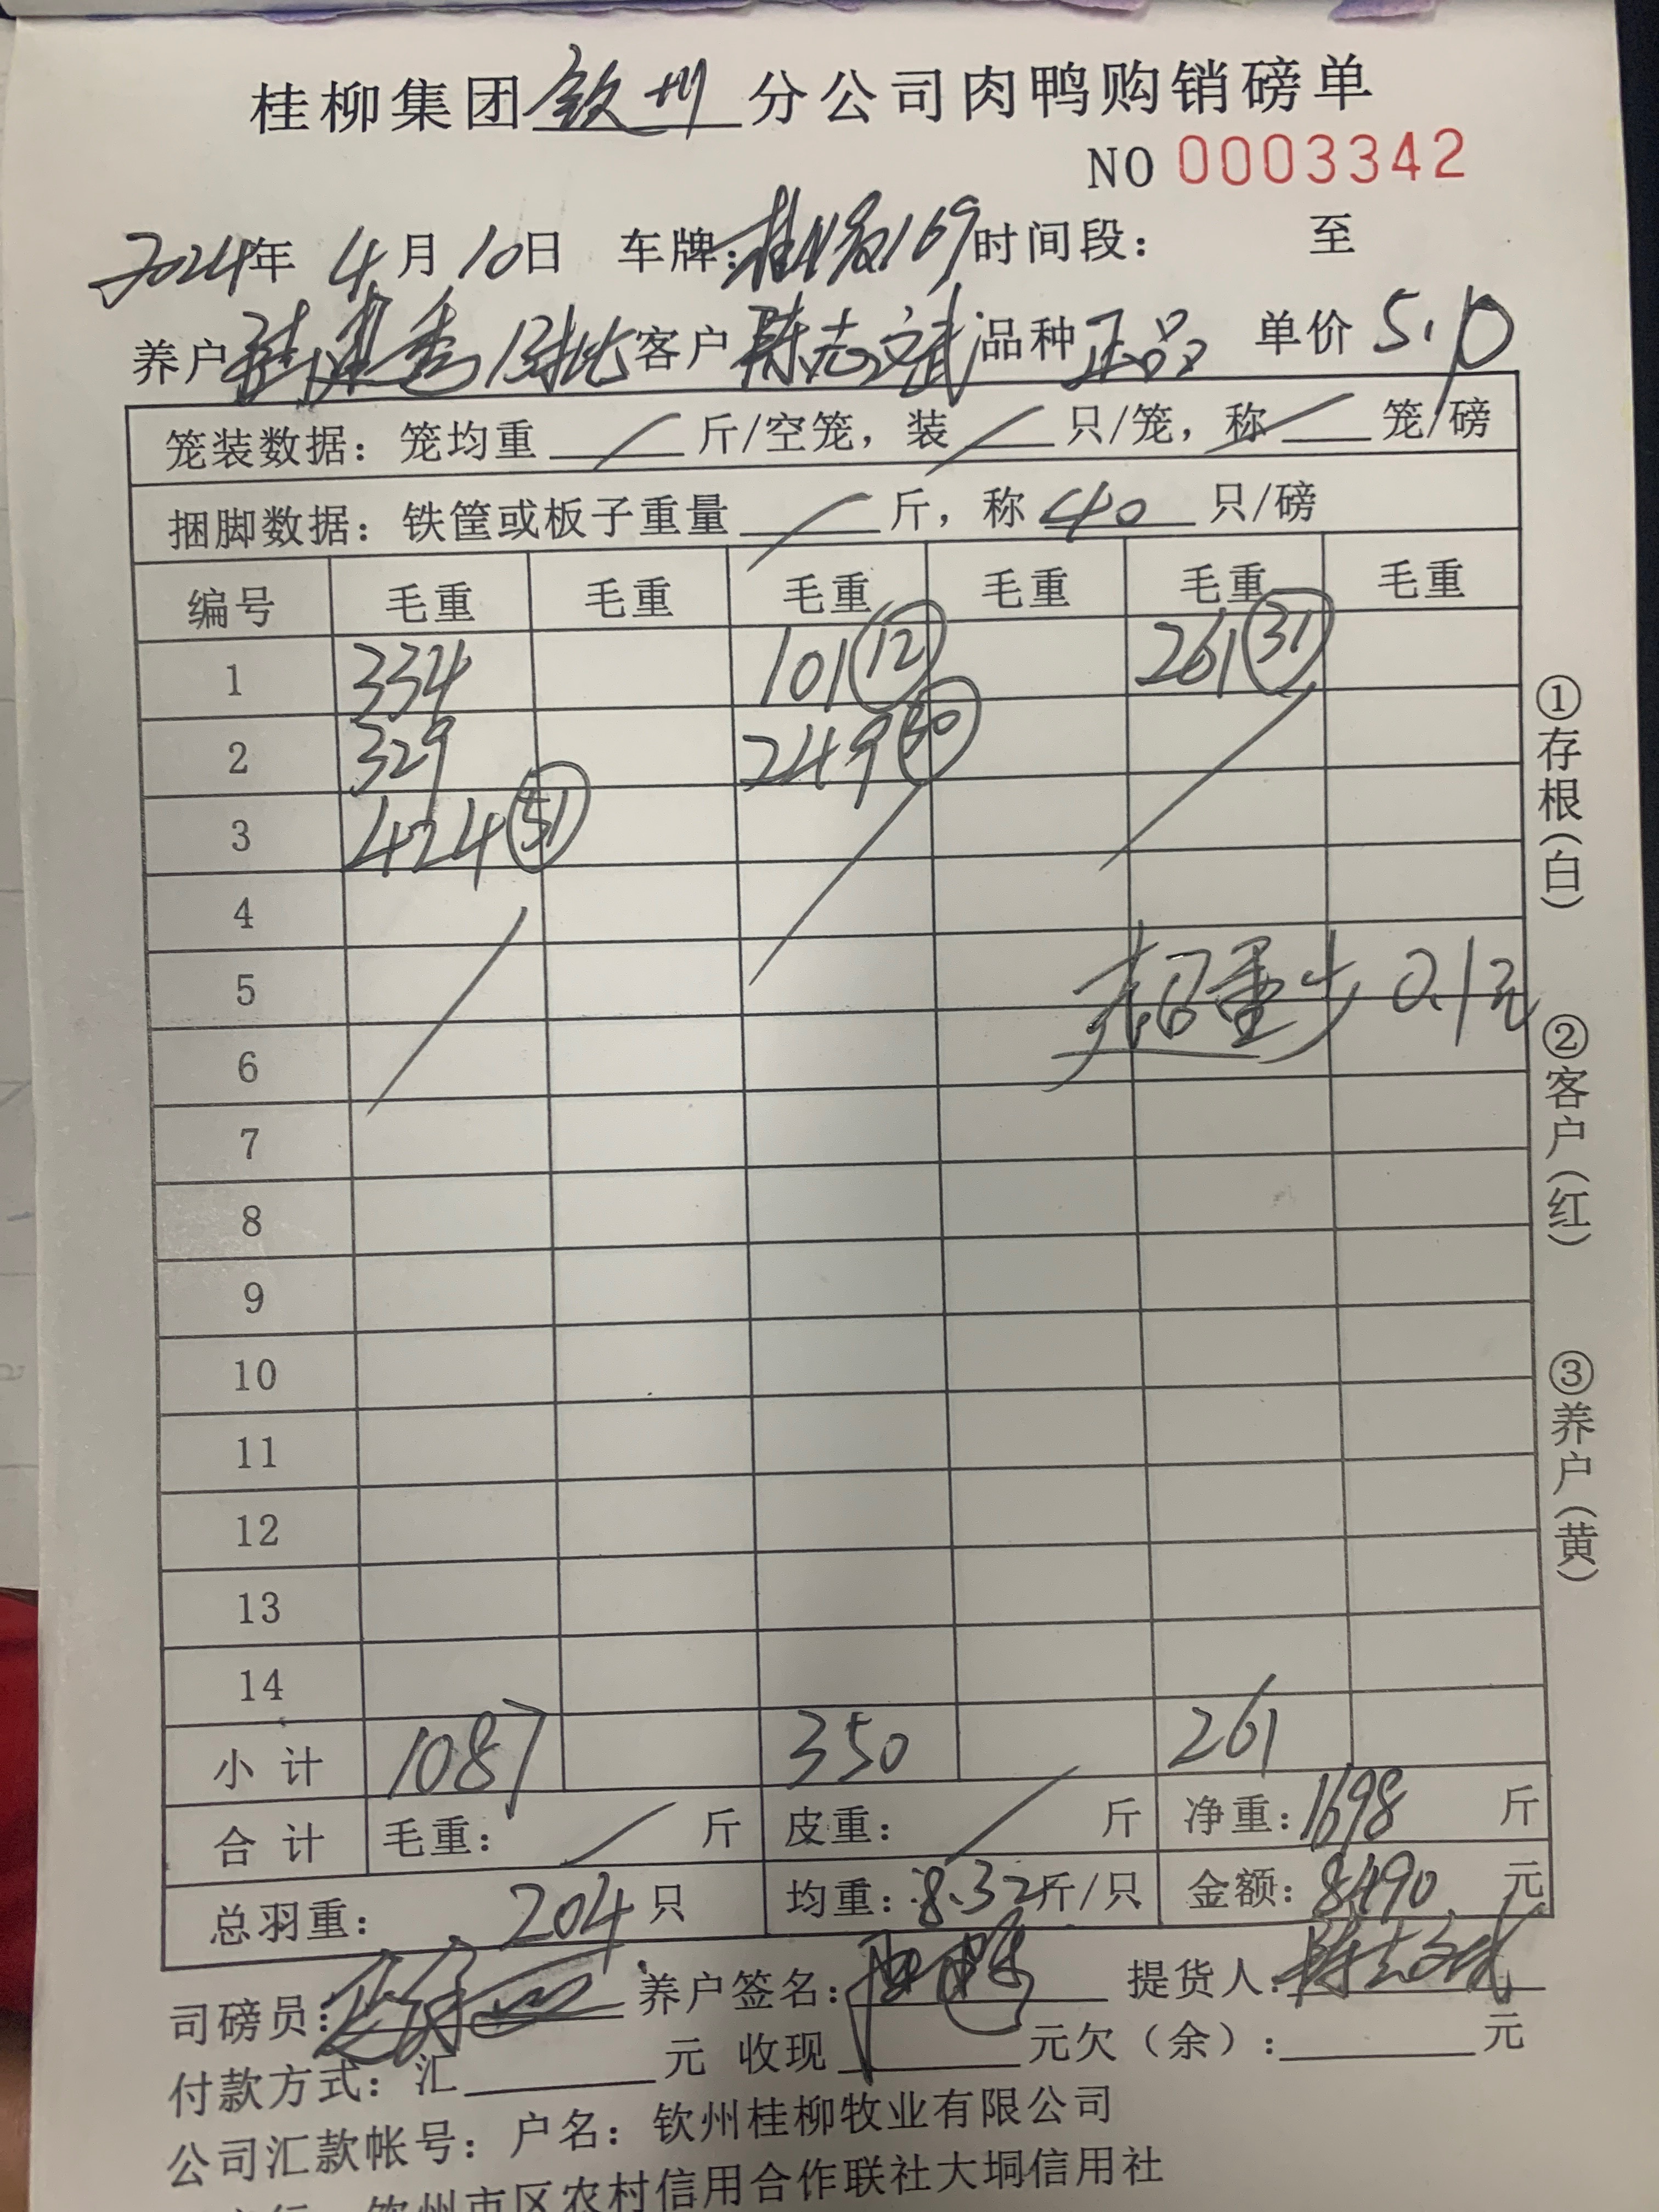 桂柳集团钦州分公司肉鸭购销磅单
NO 0003342
2024年 4月10日 车牌:桂N 169 时间段: 至
养户 13批 客户 陈志文武 品种 正品 单价 5.10
笼装数据: 笼均重 / 斤/空笼, 装 / 只/笼, 称 / 笼/磅
捆脚数据: 铁筐或板子重量 / 斤, 称 40 只/磅
编号 毛重 毛重 毛重 毛重 毛重 毛重
1 334 101 (12) 261 (31)
2 329 249 (30)
3 424 (51)
4
5 超重少0.1元
6
7
8
9
10
11
12
13
14
小计 1087 350 261
合计 毛重: / 斤 皮重: / 斤 净重: 1698 斤
总羽重: 204 只 均重: 8.32 斤/只 金额: 8490 元
司磅员: 养户签名: 提货人: 陈志文武
付款方式: 汇 元 收现 元欠(余): 元
公司汇款帐号: 户名: 钦州桂柳牧业有限公司
钦州市区农村信用合作联社大垌信用社
①存根(白) ②客户(红) ③养户(黄)